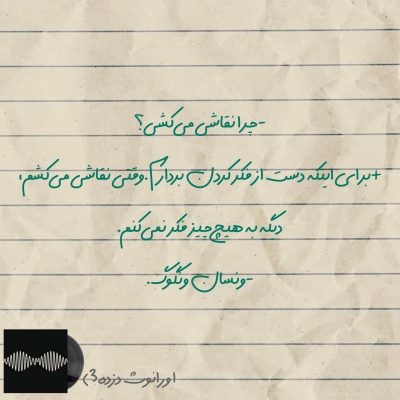 -چرا نقاشی می‌کشی؟
+برای اینکه دست از فکر کردن بردارم. وقتی نقاشی می‌کشم،
دیگه به هیچ چیز فکر نمی‌کنم.
-ونسان ونگوگ.
اورانوث دزده3)